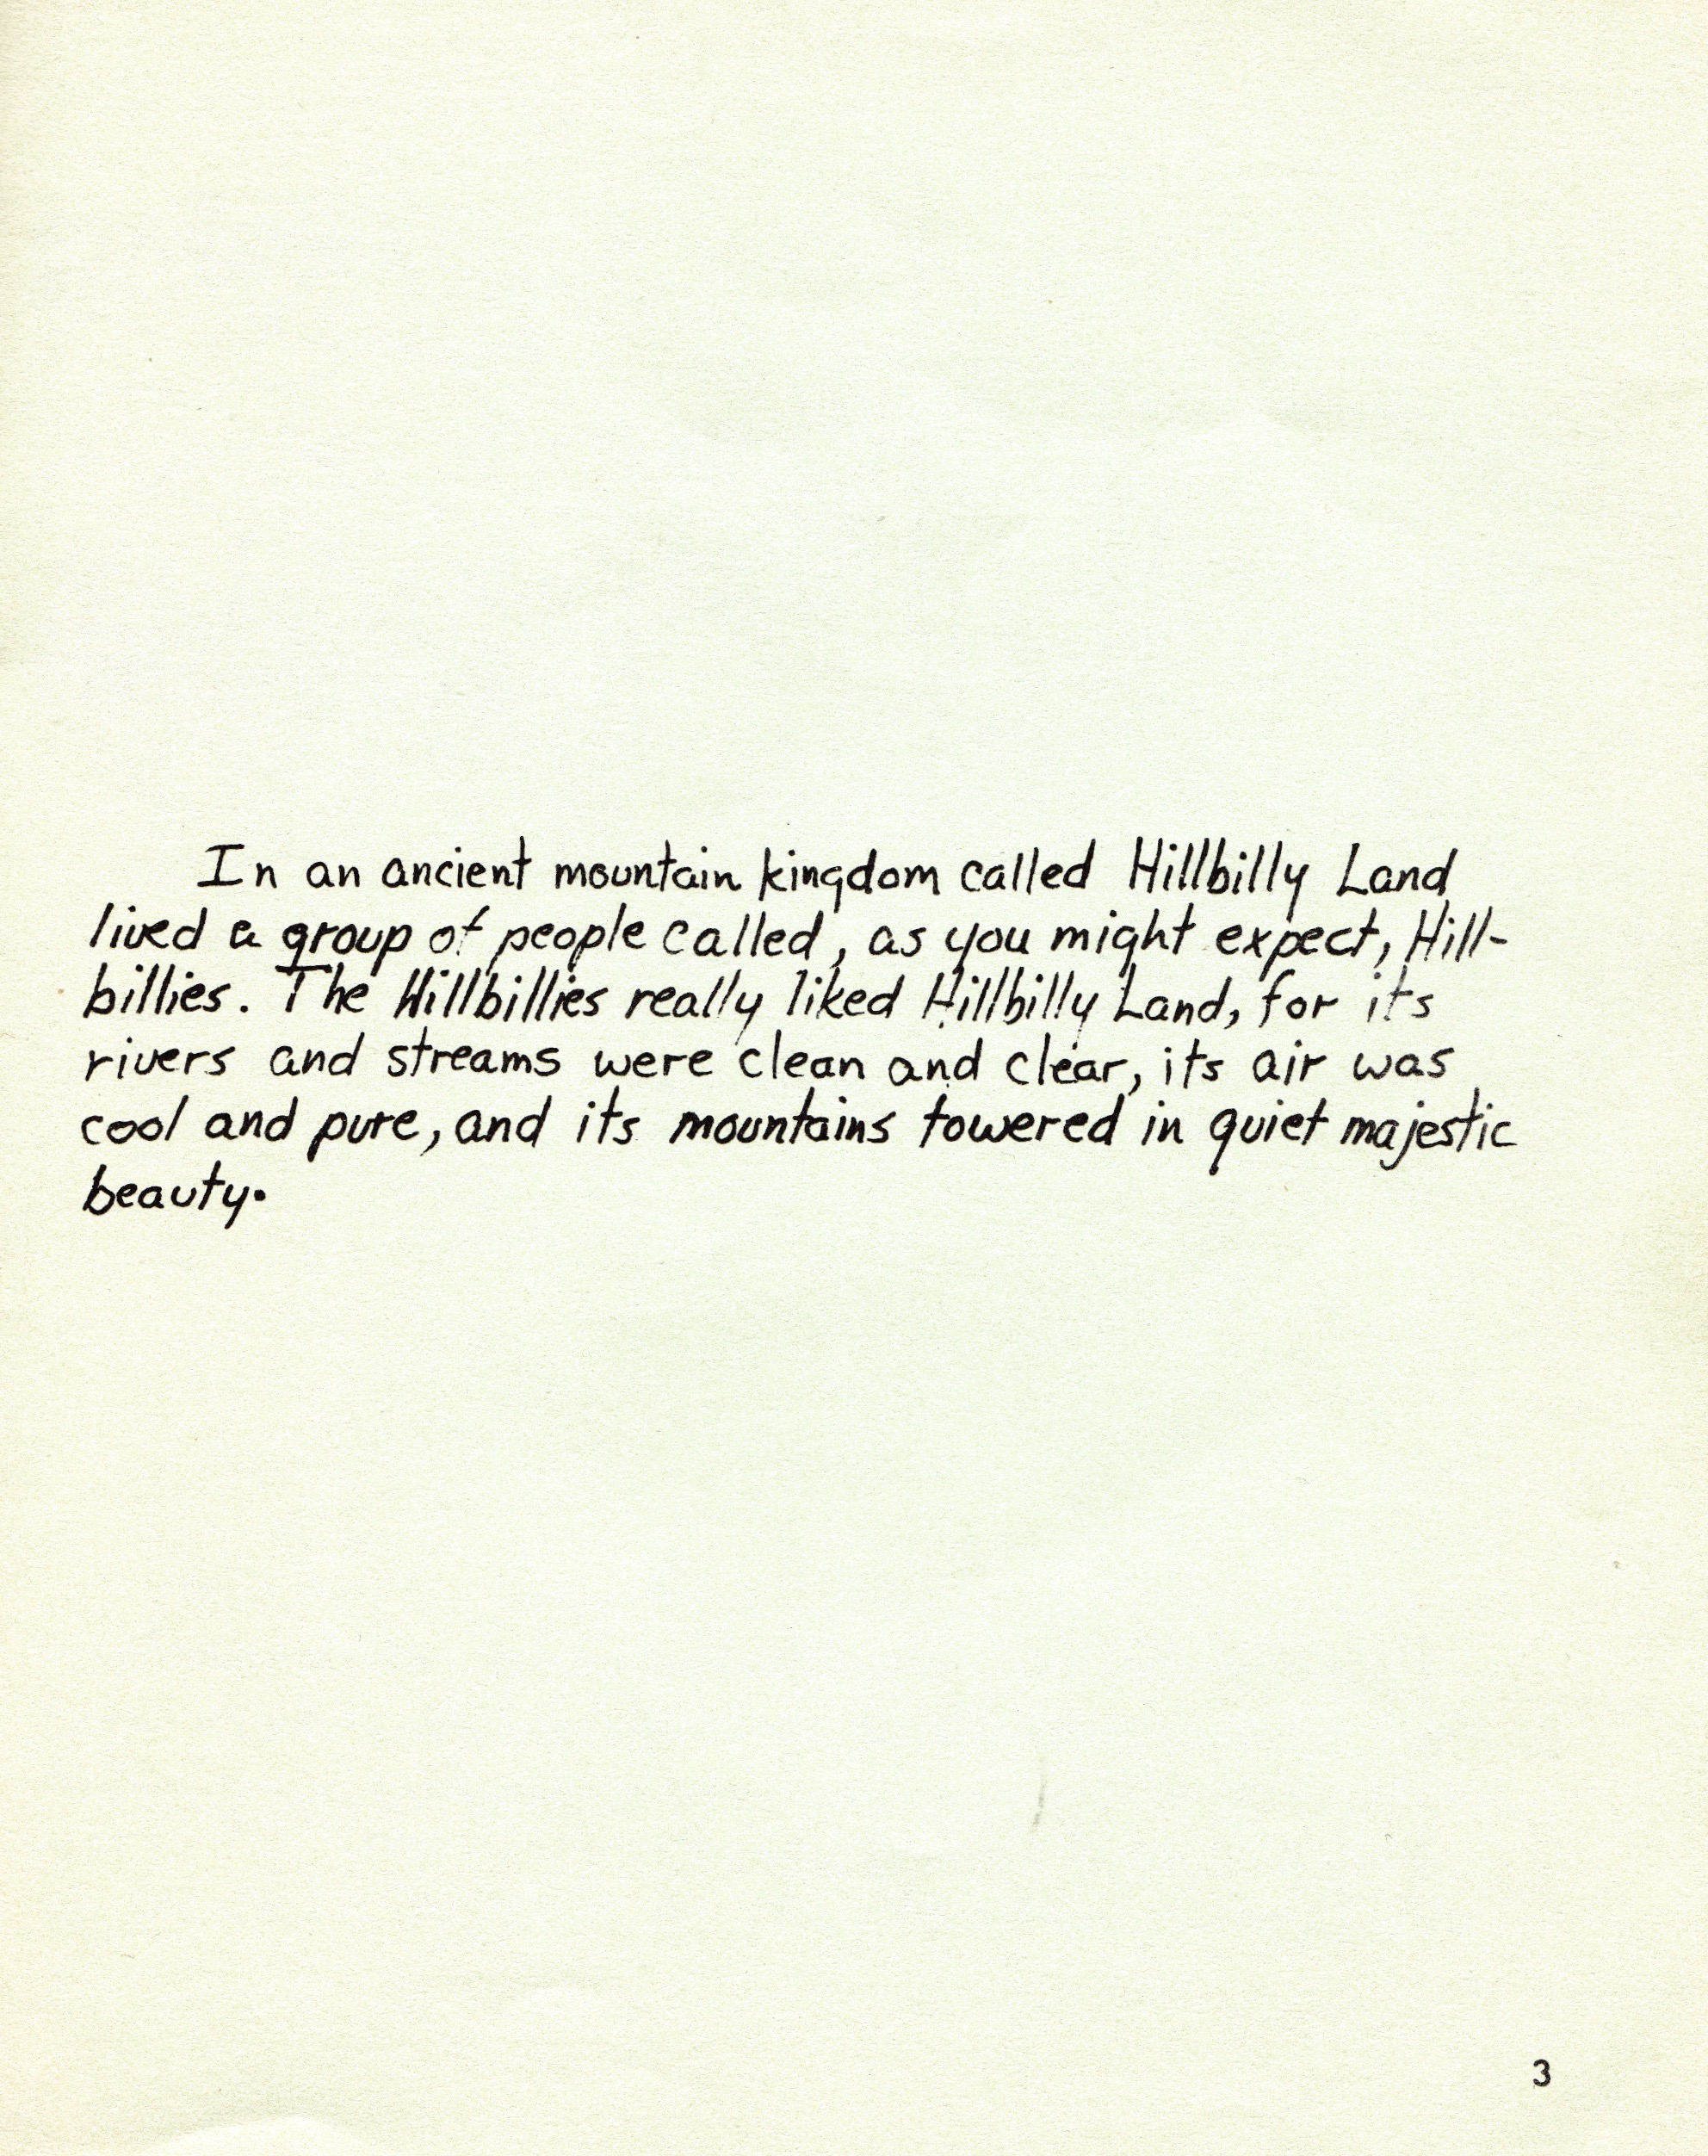 In an ancient mountain kingdom called Hillbilly Land
lived a group of people called, as you might expect, Hill-
billies. The Hillbillies really liked Hillbilly Land, for its
rivers and streams were clean and clear, its air was
cool and pure, and its mountains towered in quiet majestic
beauty.
3